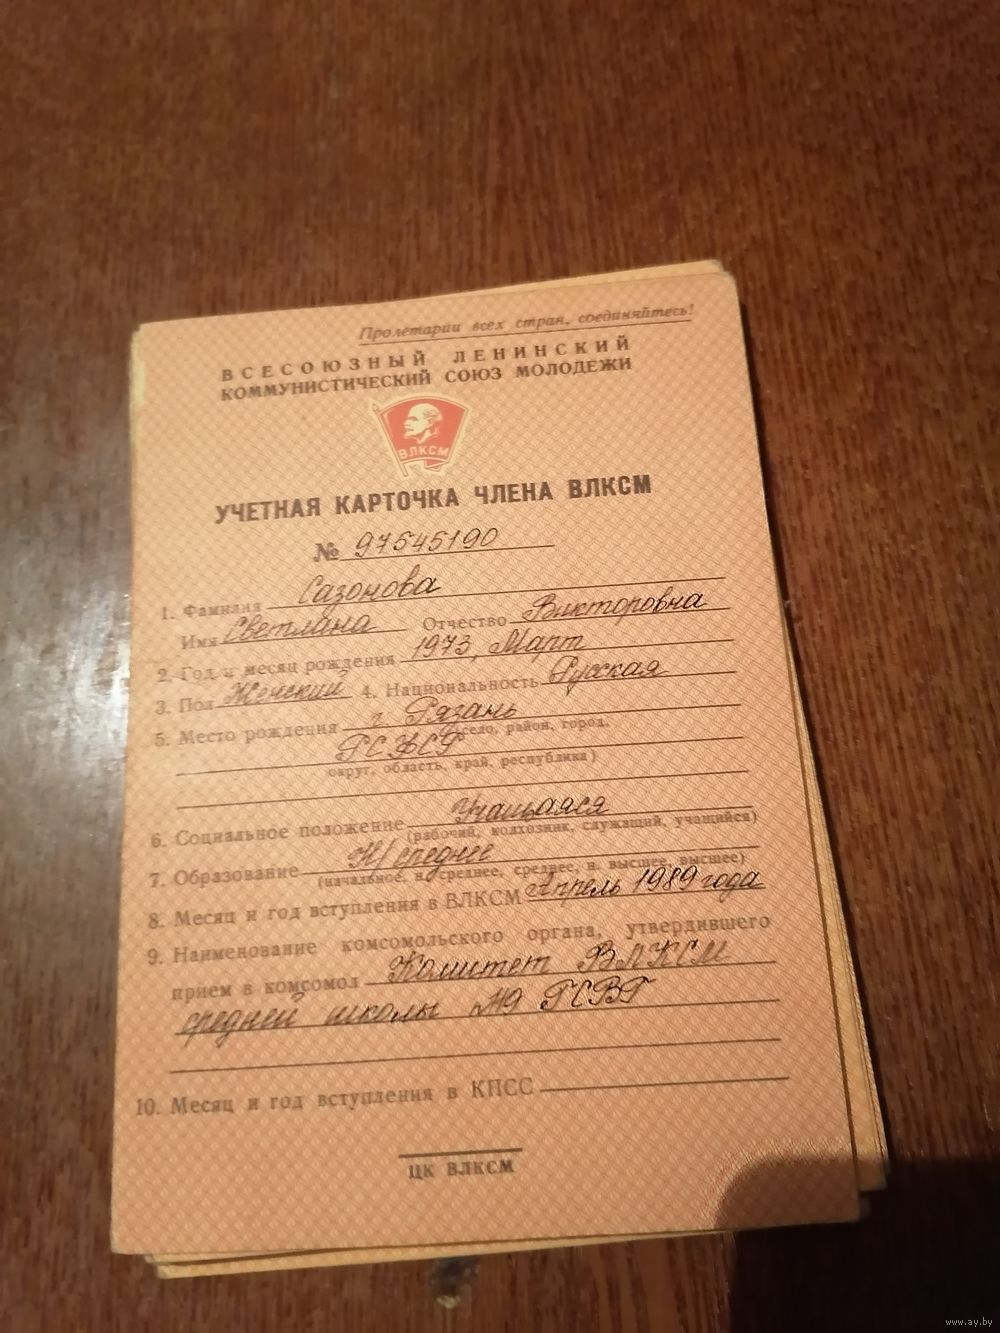 Пролетарии всех стран, соединяйтесь!
ВСЕСОЮЗНЫЙ ЛЕНИНСКИЙ
КОММУНИСТИЧЕСКИЙ СОЮЗ МОЛОДЕЖИ
ВЛКСМ
УЧЕТНАЯ КАРТОЧКА ЧЛЕНА ВЛКСМ
№ 97545190
1. Фамилия Сазонова
Имя Светлана Отчество Викторовна
2. Год и месяц рождения 1973, Март
3. Пол Женский 4. Национальность Русская
5. Место рождения г Рязань
село, район, город,
РСФСР
округ, область, край, республика)
6. Социальное положение Учащаяся
(рабочий, колхозник, служащий, учащийся)
7. Образование Н/среднее
(начальное, н. среднее, среднее, н. высшее, высшее)
8. Месяц и год вступления в ВЛКСМ Апрель 1989 года
9. Наименование комсомольского органа, утвердившего
прием в комсомол Комитет ВЛКСМ
средней школы №9 ГСВГ
10. Месяц и год вступления в КПСС
ЦК ВЛКСМ
www.ay.by